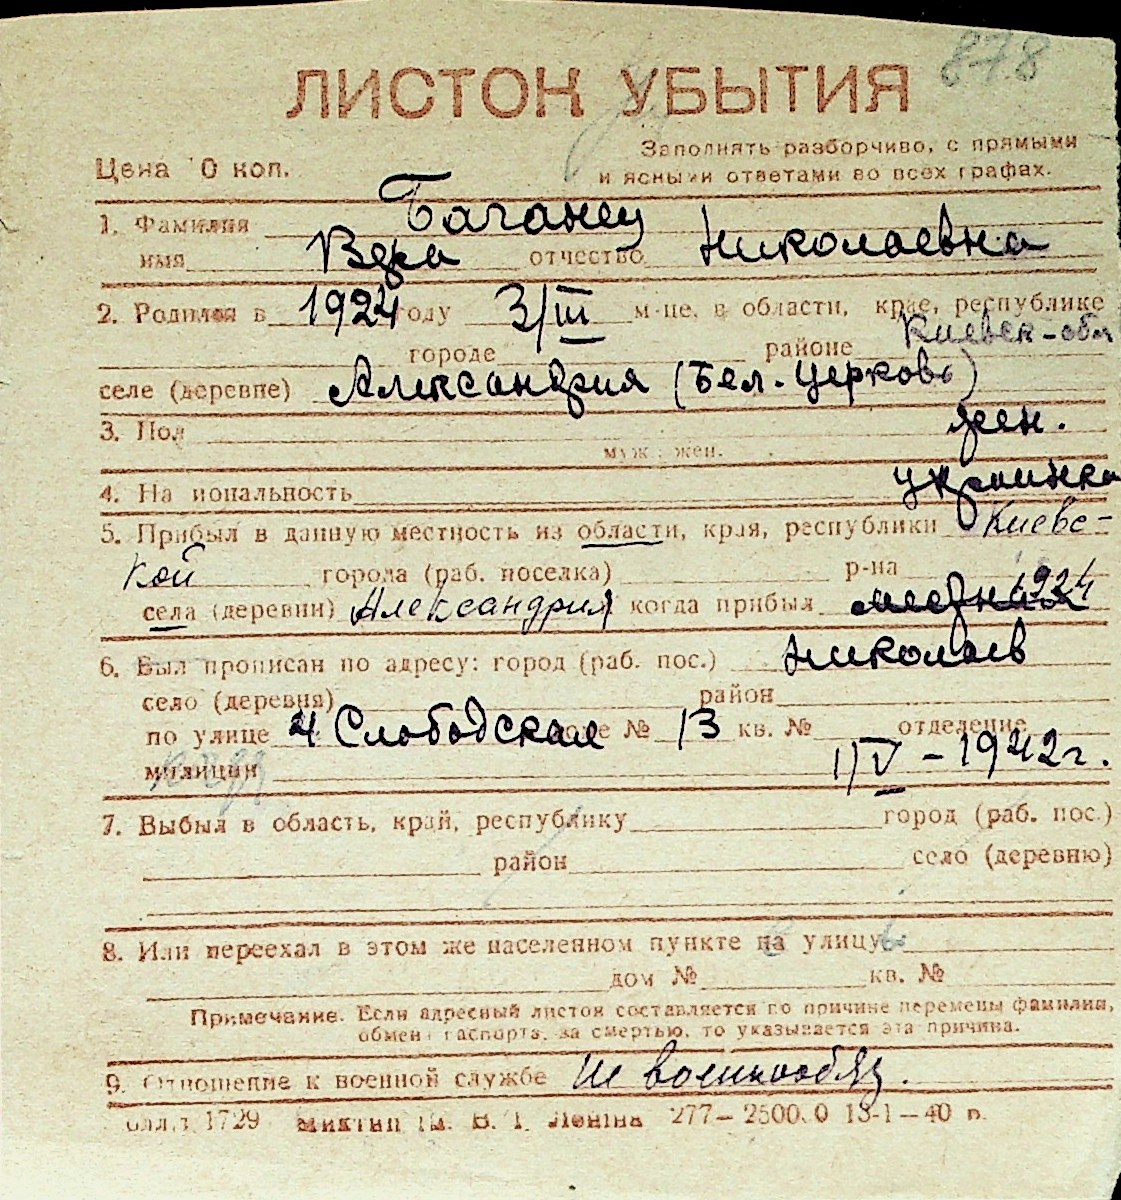 878
ЛИСТОК УБЫТИЯ
Цена 10 коп.
Заполнять разборчиво, с прямыми
и ясными ответами во всех графах.
1. Фамилия Баганец
имя Вера отчество Николаевна
2. Родился в 1924 году 3/III м-це, в области, крае, республике
городе районе Киевск-обл
селе (деревне) Александрия (Бел. Церковь)
3. Пол жен.
муж.: жен.
4. Национальность украинка
5. Прибыл в данную местность из области, края, республики Киевс-
кой города (раб. поселка) р-на
села (деревни) Александрия когда прибыл 1924
6. Был прописан по адресу: город (раб. пос.) Николаев
село (деревня) район
по улице 4 Слободская доме № 13 кв. № отделение
милиции 1/V - 1942г.
7. Выбыл в область, край, республику город (раб. пос.)
район село (деревню)
8. Или переехал в этом же населенном пункте на улицу
дом № кв. №
Примечание. Если адресный листок составляется по причине перемены фамилии,
обмена паспорта, за смертью, то указывается эта причина.
9. Отношение к военной службе не военнообяз.
1729 ім. В. І. Леніна 277— 13-1—40 р.